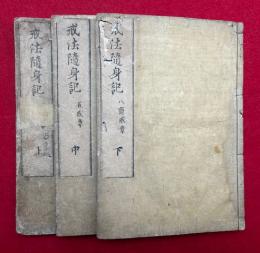 戒法隨身記
下
八齋戒章
戒法隨身記
中
五戒章
戒法隨身記
上